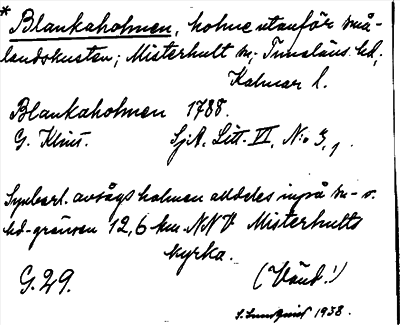 * Blankaholmen, holme utanför små-
landskusten; Misterhult sn; Tunaläns hd,
Kalmar l.
Blankaholmen 1788.
G. Klint. SjA. Litt. VI, No 3,1.
Synbarl. avsågs holmen alldeles inpå sn- o.
hd-gränsen 12,6 km NNV Misterhults
kyrka.
G. 29. (Vänd!)
S. Lundquist 1938.